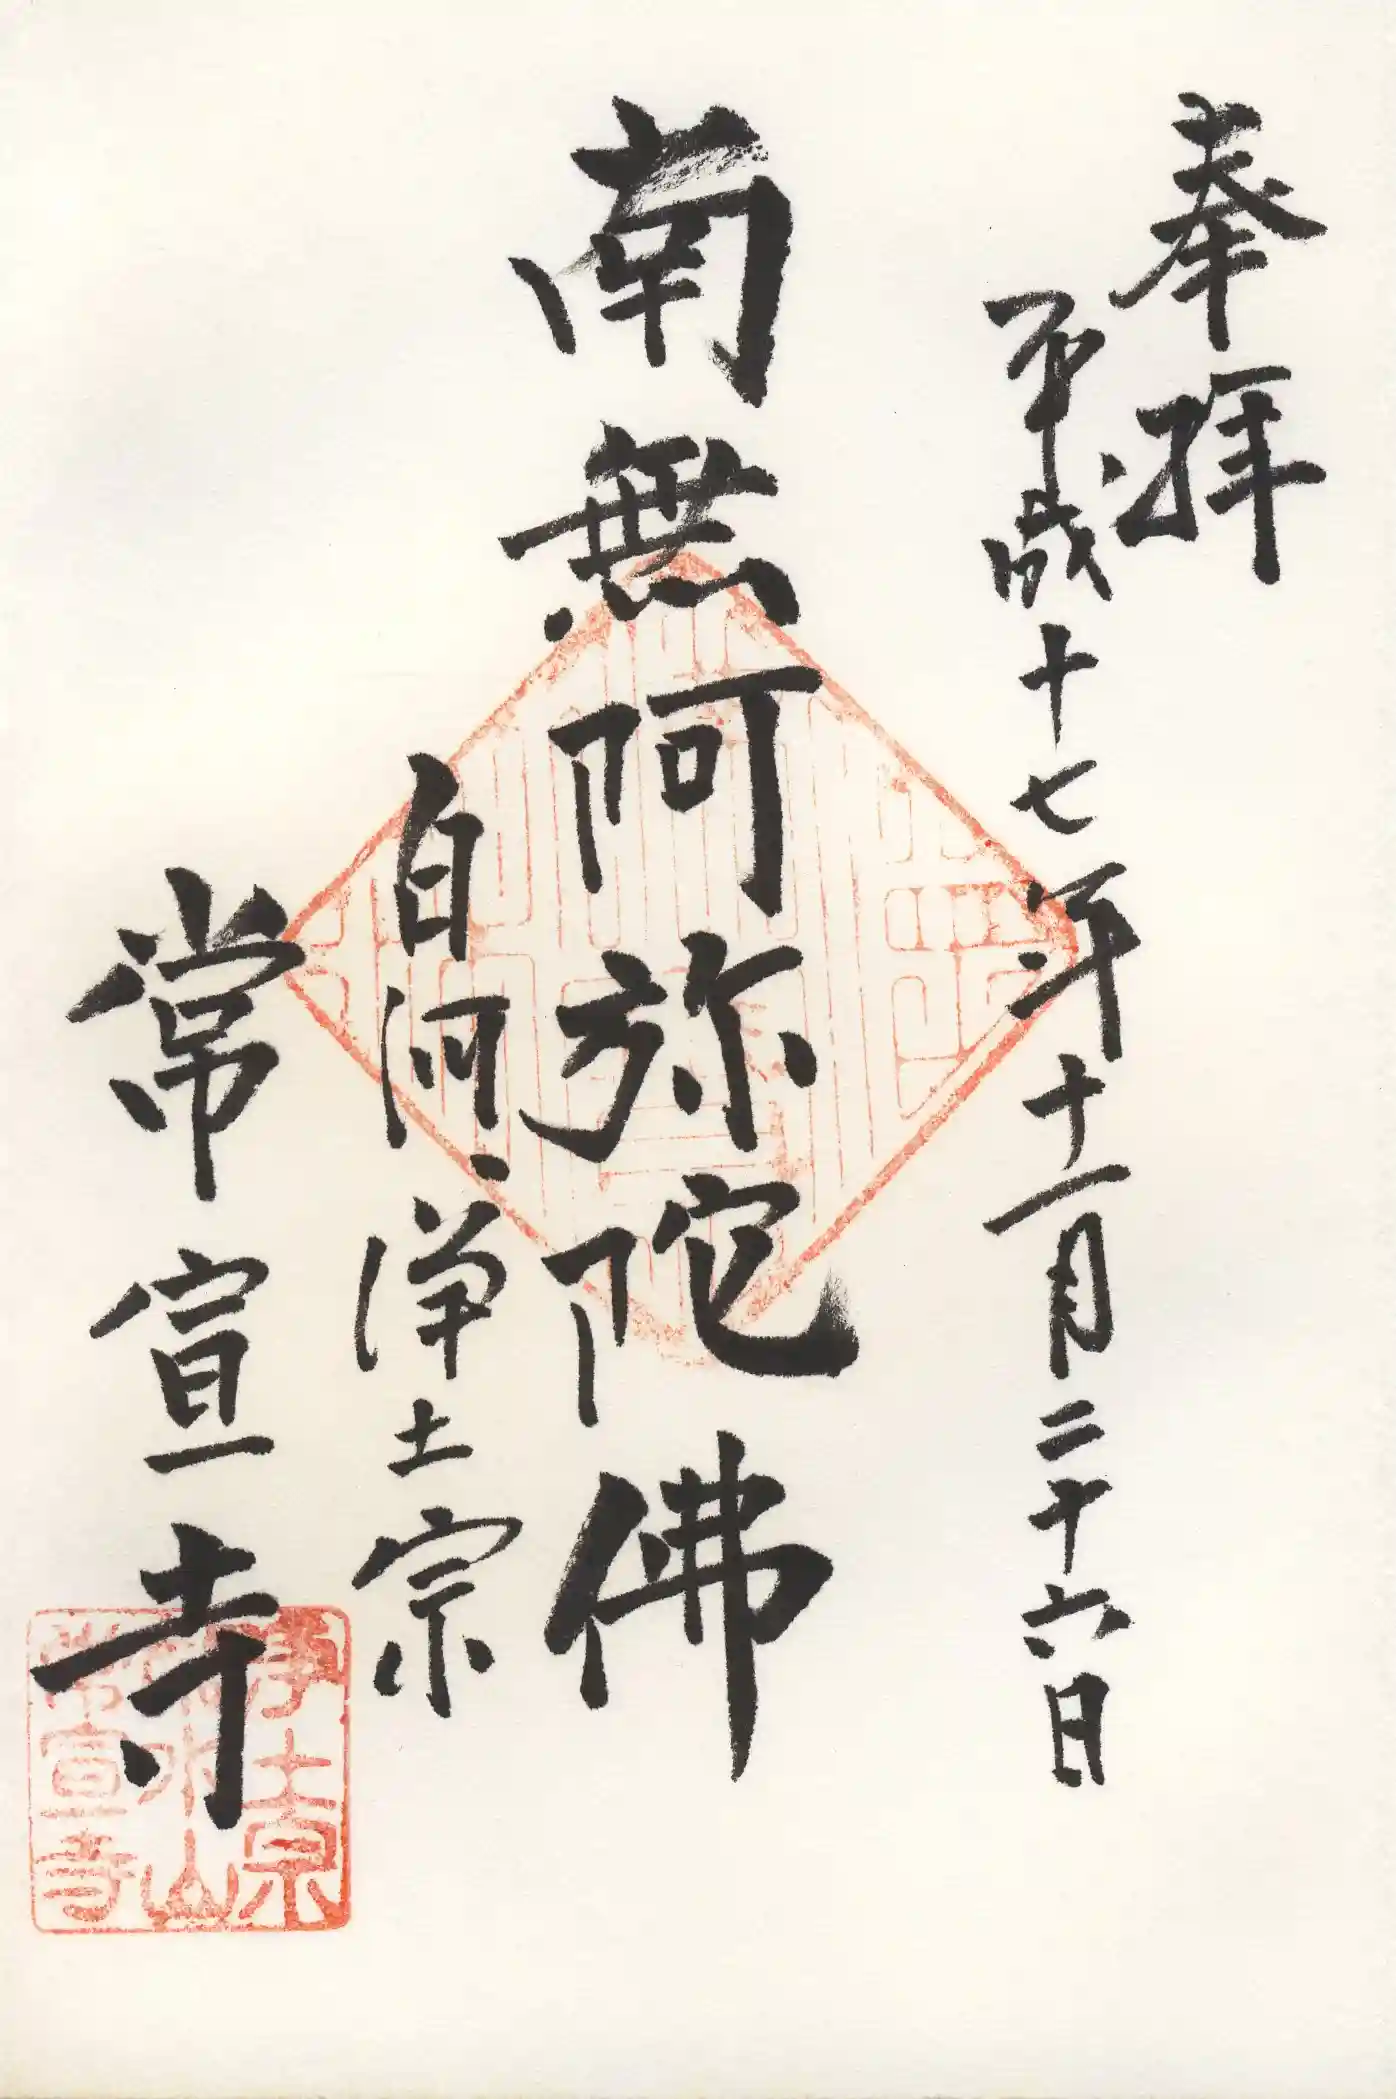 奉拝
平成十七年十一月二十六日
南無阿弥陀佛
白河 浄土宗
常宣寺
浄土宗
水山
常宣寺